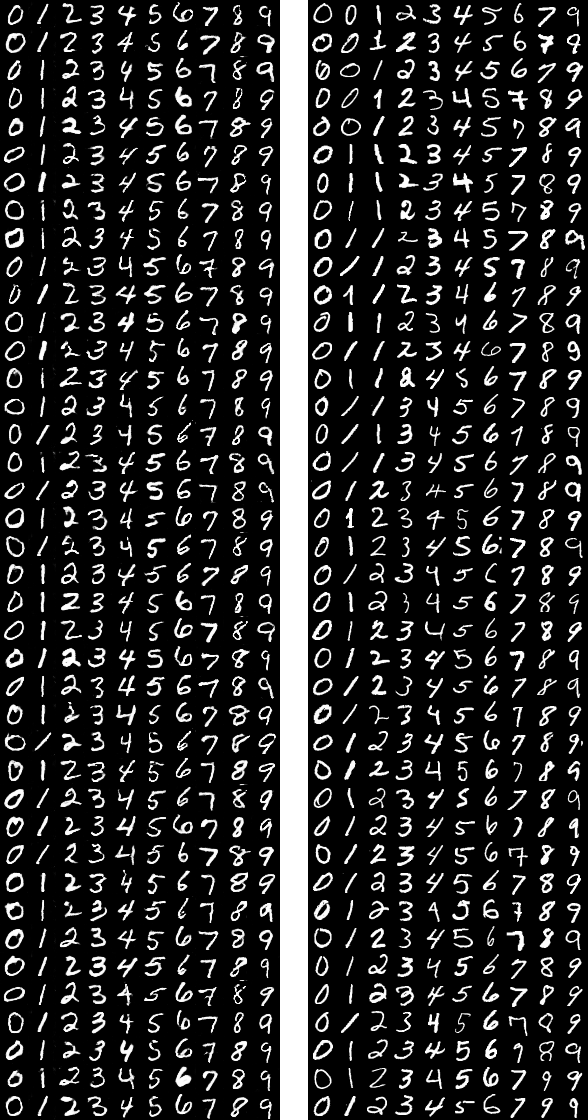 0 1 2 3 4 5 6 7 8 9
0 1 2 3 4 5 6 7 8 9
0 1 2 3 4 5 6 7 8 9
0 1 2 3 4 5 6 7 8 9
0 1 2 3 4 5 6 7 8 9
0 1 2 3 4 5 6 7 8 9
0 1 2 3 4 5 6 7 8 9
0 1 2 3 4 5 6 7 8 9
0 1 2 3 4 5 6 7 8 9
0 1 2 3 4 5 6 7 8 9
0 1 2 3 4 5 6 7 8 9
0 1 2 3 4 5 6 7 8 9
0 1 2 3 4 5 6 7 8 9
0 1 2 3 4 5 6 7 8 9
0 1 2 3 4 5 6 7 8 9
0 1 2 3 4 5 6 7 8 9
0 1 2 3 4 5 6 7 8 9
0 1 2 3 4 5 6 7 8 9
0 1 2 3 4 5 6 7 8 9
0 1 2 3 4 5 6 7 8 9
0 1 2 3 4 5 6 7 8 9
0 1 2 3 4 5 6 7 8 9
0 1 2 3 4 5 6 7 8 9
0 1 2 3 4 5 6 7 8 9
0 1 2 3 4 5 6 7 8 9
0 1 2 3 4 5 6 7 8 9
0 1 2 3 4 5 6 7 8 9
0 1 2 3 4 5 6 7 8 9
0 1 2 3 4 5 6 7 8 9
0 1 2 3 4 5 6 7 8 9
0 1 2 3 4 5 6 7 8 9
0 1 2 3 4 5 6 7 8 9
0 1 2 3 4 5 6 7 8 9
0 1 2 3 4 5 6 7 8 9
0 1 2 3 4 5 6 7 8 9
0 1 2 3 4 5 6 7 8 9
0 1 2 3 4 5 6 7 8 9
0 1 2 3 4 5 6 7 8 9
0 1 2 3 4 5 6 7 8 9
0 1 2 3 4 5 6 7 8 9
0 0 1 2 3 4 5 6 7 9
0 0 1 2 3 4 5 6 7 9
0 0 1 2 3 4 5 6 7 9
0 0 1 2 3 4 5 7 8 9
0 0 1 2 3 4 5 7 8 9
0 1 1 2 3 4 5 7 8 9
0 1 1 2 3 4 5 7 8 9
0 1 1 2 3 4 5 7 8 9
0 1 1 2 3 4 5 7 8 9
0 1 1 2 3 4 5 7 8 9
0 1 1 2 3 4 6 7 8 9
0 1 1 2 3 4 6 7 8 9
0 1 1 2 3 4 6 7 8 9
0 1 1 2 4 5 6 7 8 9
0 1 1 3 4 5 6 7 8 9
0 1 1 3 4 5 6 7 8 9
0 1 1 3 4 5 6 7 8 9
0 1 2 3 4 5 6 7 8 9
0 1 2 3 4 5 6 7 8 9
0 1 2 3 4 5 6 7 8 9
0 1 2 3 4 5 6 7 8 9
0 1 2 3 4 5 6 7 8 9
0 1 2 3 4 5 6 7 8 9
0 1 2 3 4 5 6 7 8 9
0 1 2 3 4 5 6 7 8 9
0 1 2 3 4 5 6 7 8 9
0 1 2 3 4 5 6 7 8 9
0 1 2 3 4 5 6 7 8 9
0 1 2 3 4 5 6 7 8 9
0 1 2 3 4 5 6 7 8 9
0 1 2 3 4 5 6 7 8 9
0 1 2 3 4 5 6 7 8 9
0 1 2 3 4 5 6 7 8 9
0 1 2 3 4 5 6 7 8 9
0 1 2 3 4 5 6 7 8 9
0 1 2 3 4 5 6 7 8 9
0 1 2 3 4 5 6 7 8 9
0 1 2 3 4 5 6 7 8 9
0 1 2 3 4 5 6 7 9 9
0 1 2 3 4 5 6 7 9 9